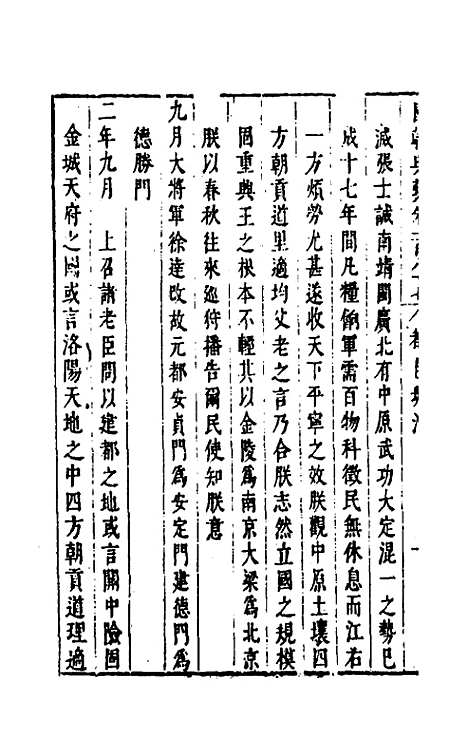 滅張士誠南靖閩廣北有中原武功大定混一之勢已
成十七年間凡糧餉軍需百物科徵民無休息而江右
一方煩勞尤甚遂收天下平寧之效朕觀中原土壤四
方朝貢道里適均父老之言乃合朕志然立國之規模
固重興王之根本不輕其以金陵爲南京大梁爲北京
朕以春秋往來廵狩播告爾民使知朕意
九月大將軍徐達改故元都安貞門爲安定門建德門爲
德勝門
二年九月 上召諸老臣問以建都之地或言關中險固
金城天府之國或言洛陽天地之中四方朝貢道理適